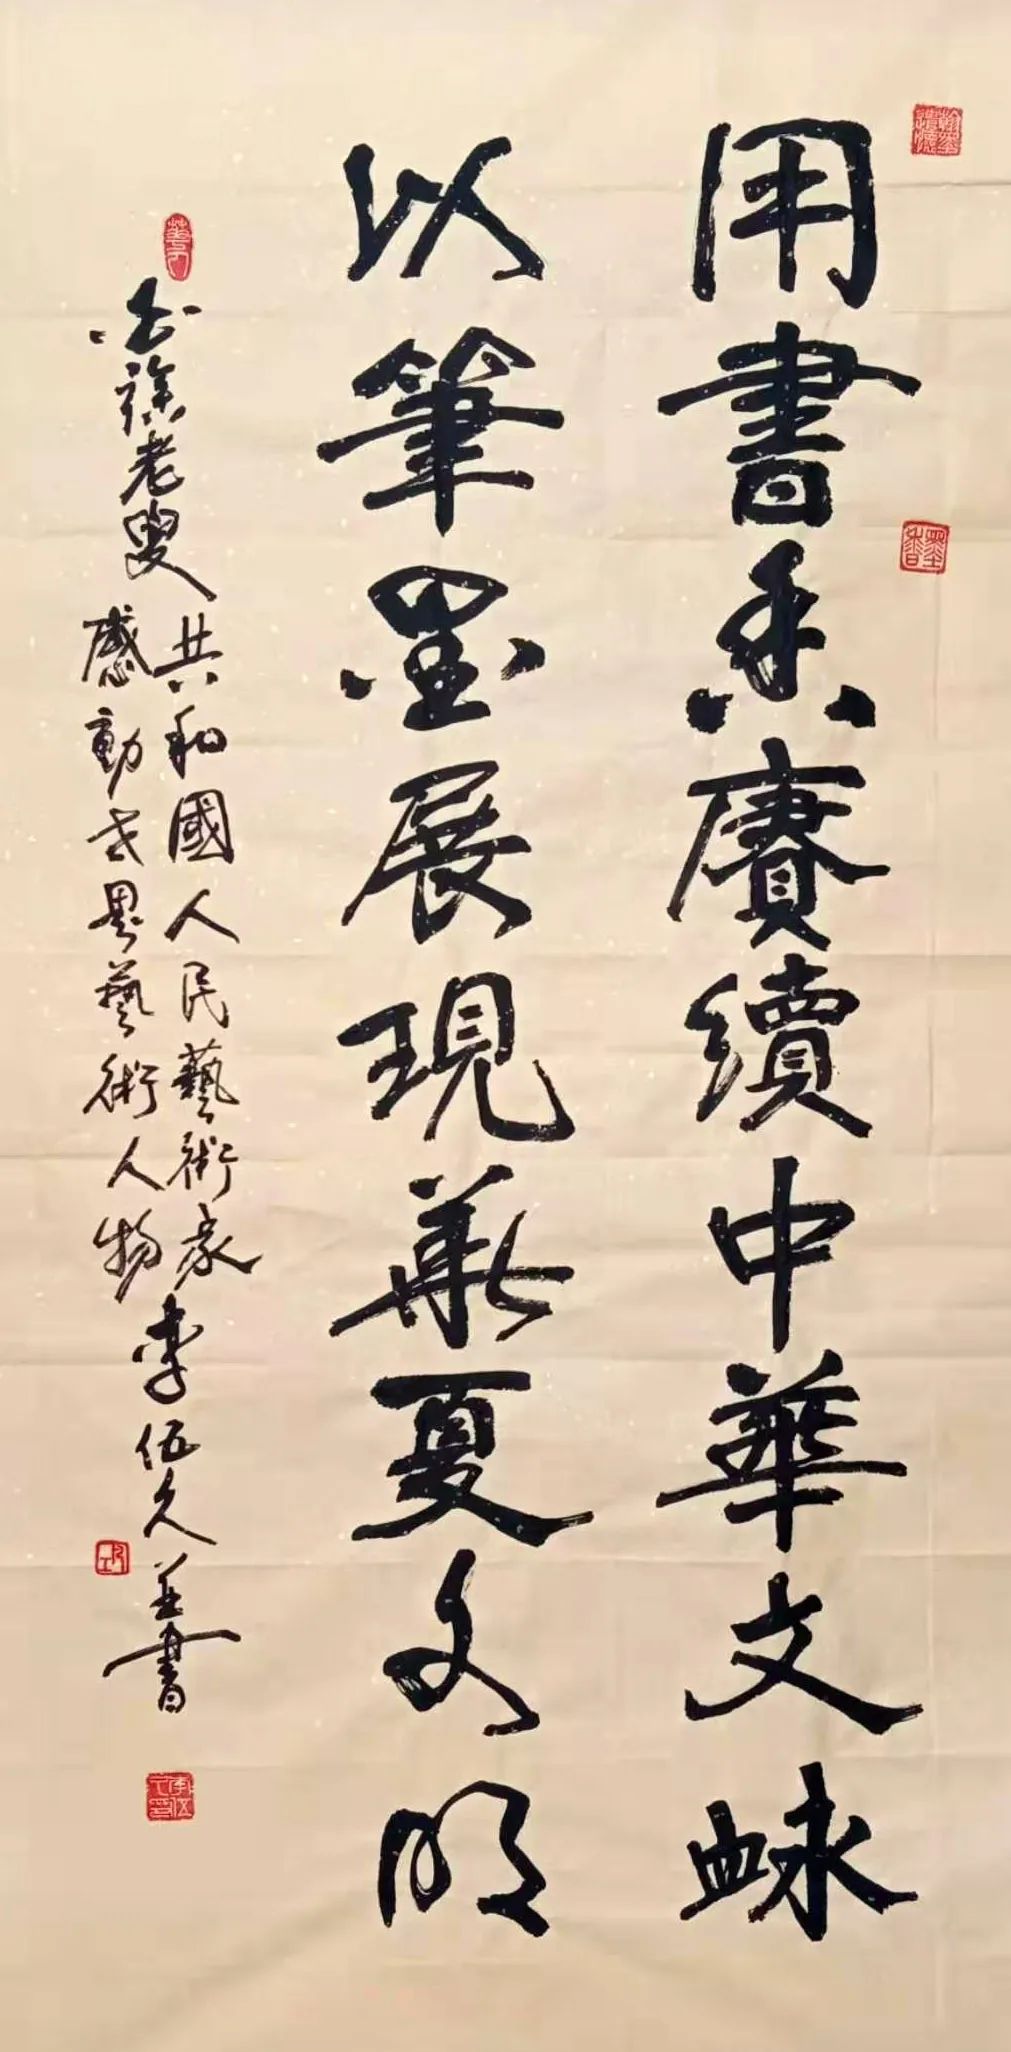 用書香賡續中華文䘑
以筆墨展現華夏文明
老叟
共和國人民藝術家
感動世界藝術人物
李伍久並書